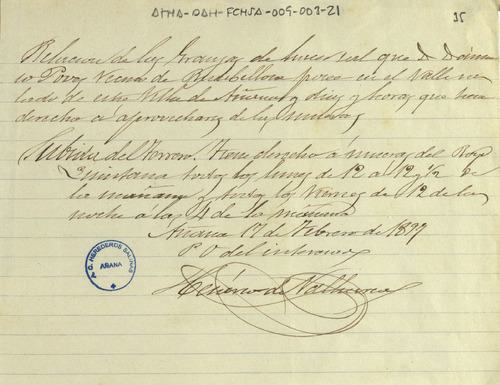 ATHA-DAH-FCHSA-009-003-21
35
Relacion de las Granjas de hacer sal que D. Dami
lo Poves Vecino de Berdebillosa posee en el Valle sa
lado de esta Villa de Añana y dias y horas que tiene
derecho a aprovecharse de las mueras
Subida del Torrero. Tiene derecho a mueras del Royo
Quintana todos los lunes de 12 a 12 y ½ de
la mañana y todos los Viernes de 12 de la
noche a las 4 de la mañana
Añana 17 de Febrero de 1897
P O del interesado
de
A. C. HEREDEROS SALINAS
AÑANA